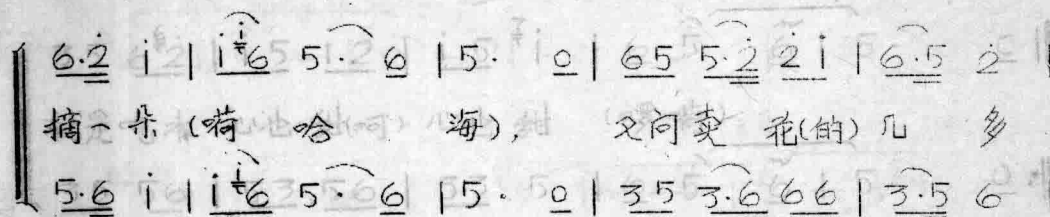 6·2̇ i̇ | i̇ i̇6 5· 6 | 5· 0 | 65 5·2̇ 2̇i̇ | 6·5 2̇
摘一朵(嗬哈海),又问卖花(的)几多
5·6 i̇ | i̇ i̇6 5· 6 | 5· 0 | 35 3·6 66 | 3·5 6